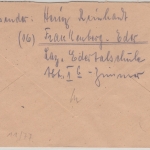 sender: Heinz Reinhardt
(16) Frankenberg-Eder
Lag. Edertalschule
Abt. I E - Zimmer